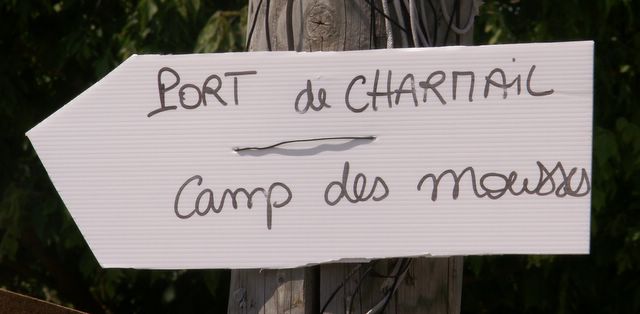 PORT de CHARMAIL
Camp des mousses